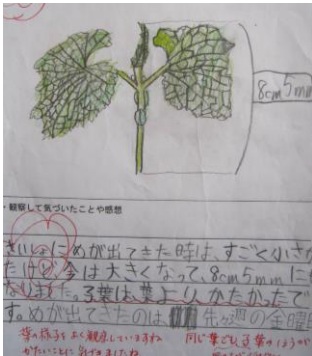 8cm5mm
・観察して気づいたことや感想
さいしょにめが出てきた時は、すごく小さか
たけど、今は大きくなって、8cm5mmに
なりました。子葉は、葉よりかたかったで
す。めが出てきたのは 先週の金曜
葉の様子をよく観察していますね
かたいことに気づきましたね
同じ葉でも、子葉のほうが